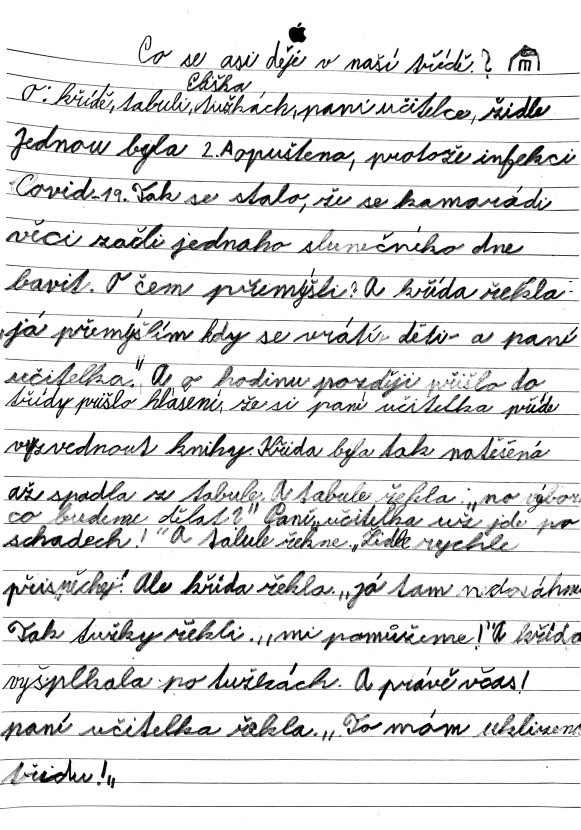 Co se asi děje v naší třídě.?
Eliška
O: křídě, tabuli, tužkách, paní učitelce, židle
Jednou byla 2.A opuštena, protože infekci
Covid-19. Tak se stalo, že se kamarádi
věci začli jednoho slunečního dne
bavit. O čem přemýšli? A křída řekla:
„já přemýšlím kdy se vrátí děti a paní
učitelka." A o hodinu později přišlo do
třídy přišlo hlášení, že si paní učitelka přide
vyzvednout knihy. Křida byla tak natěšená
až spadla ze tabule. A tabule řekla: „no výbor
co budeme dělat?" Paní učitelka už jde po
schadech!" A tabule řekne. „Židle rychle
přispěchej! Ale křída řekla. „já tam nedosáhnu
Tak tužky řekli. „mi pomůžeme!" A křída
vyšplhala po tužkách. A právě včas!
paní učitelka řekla. „To mám uklizeno
třídu!„